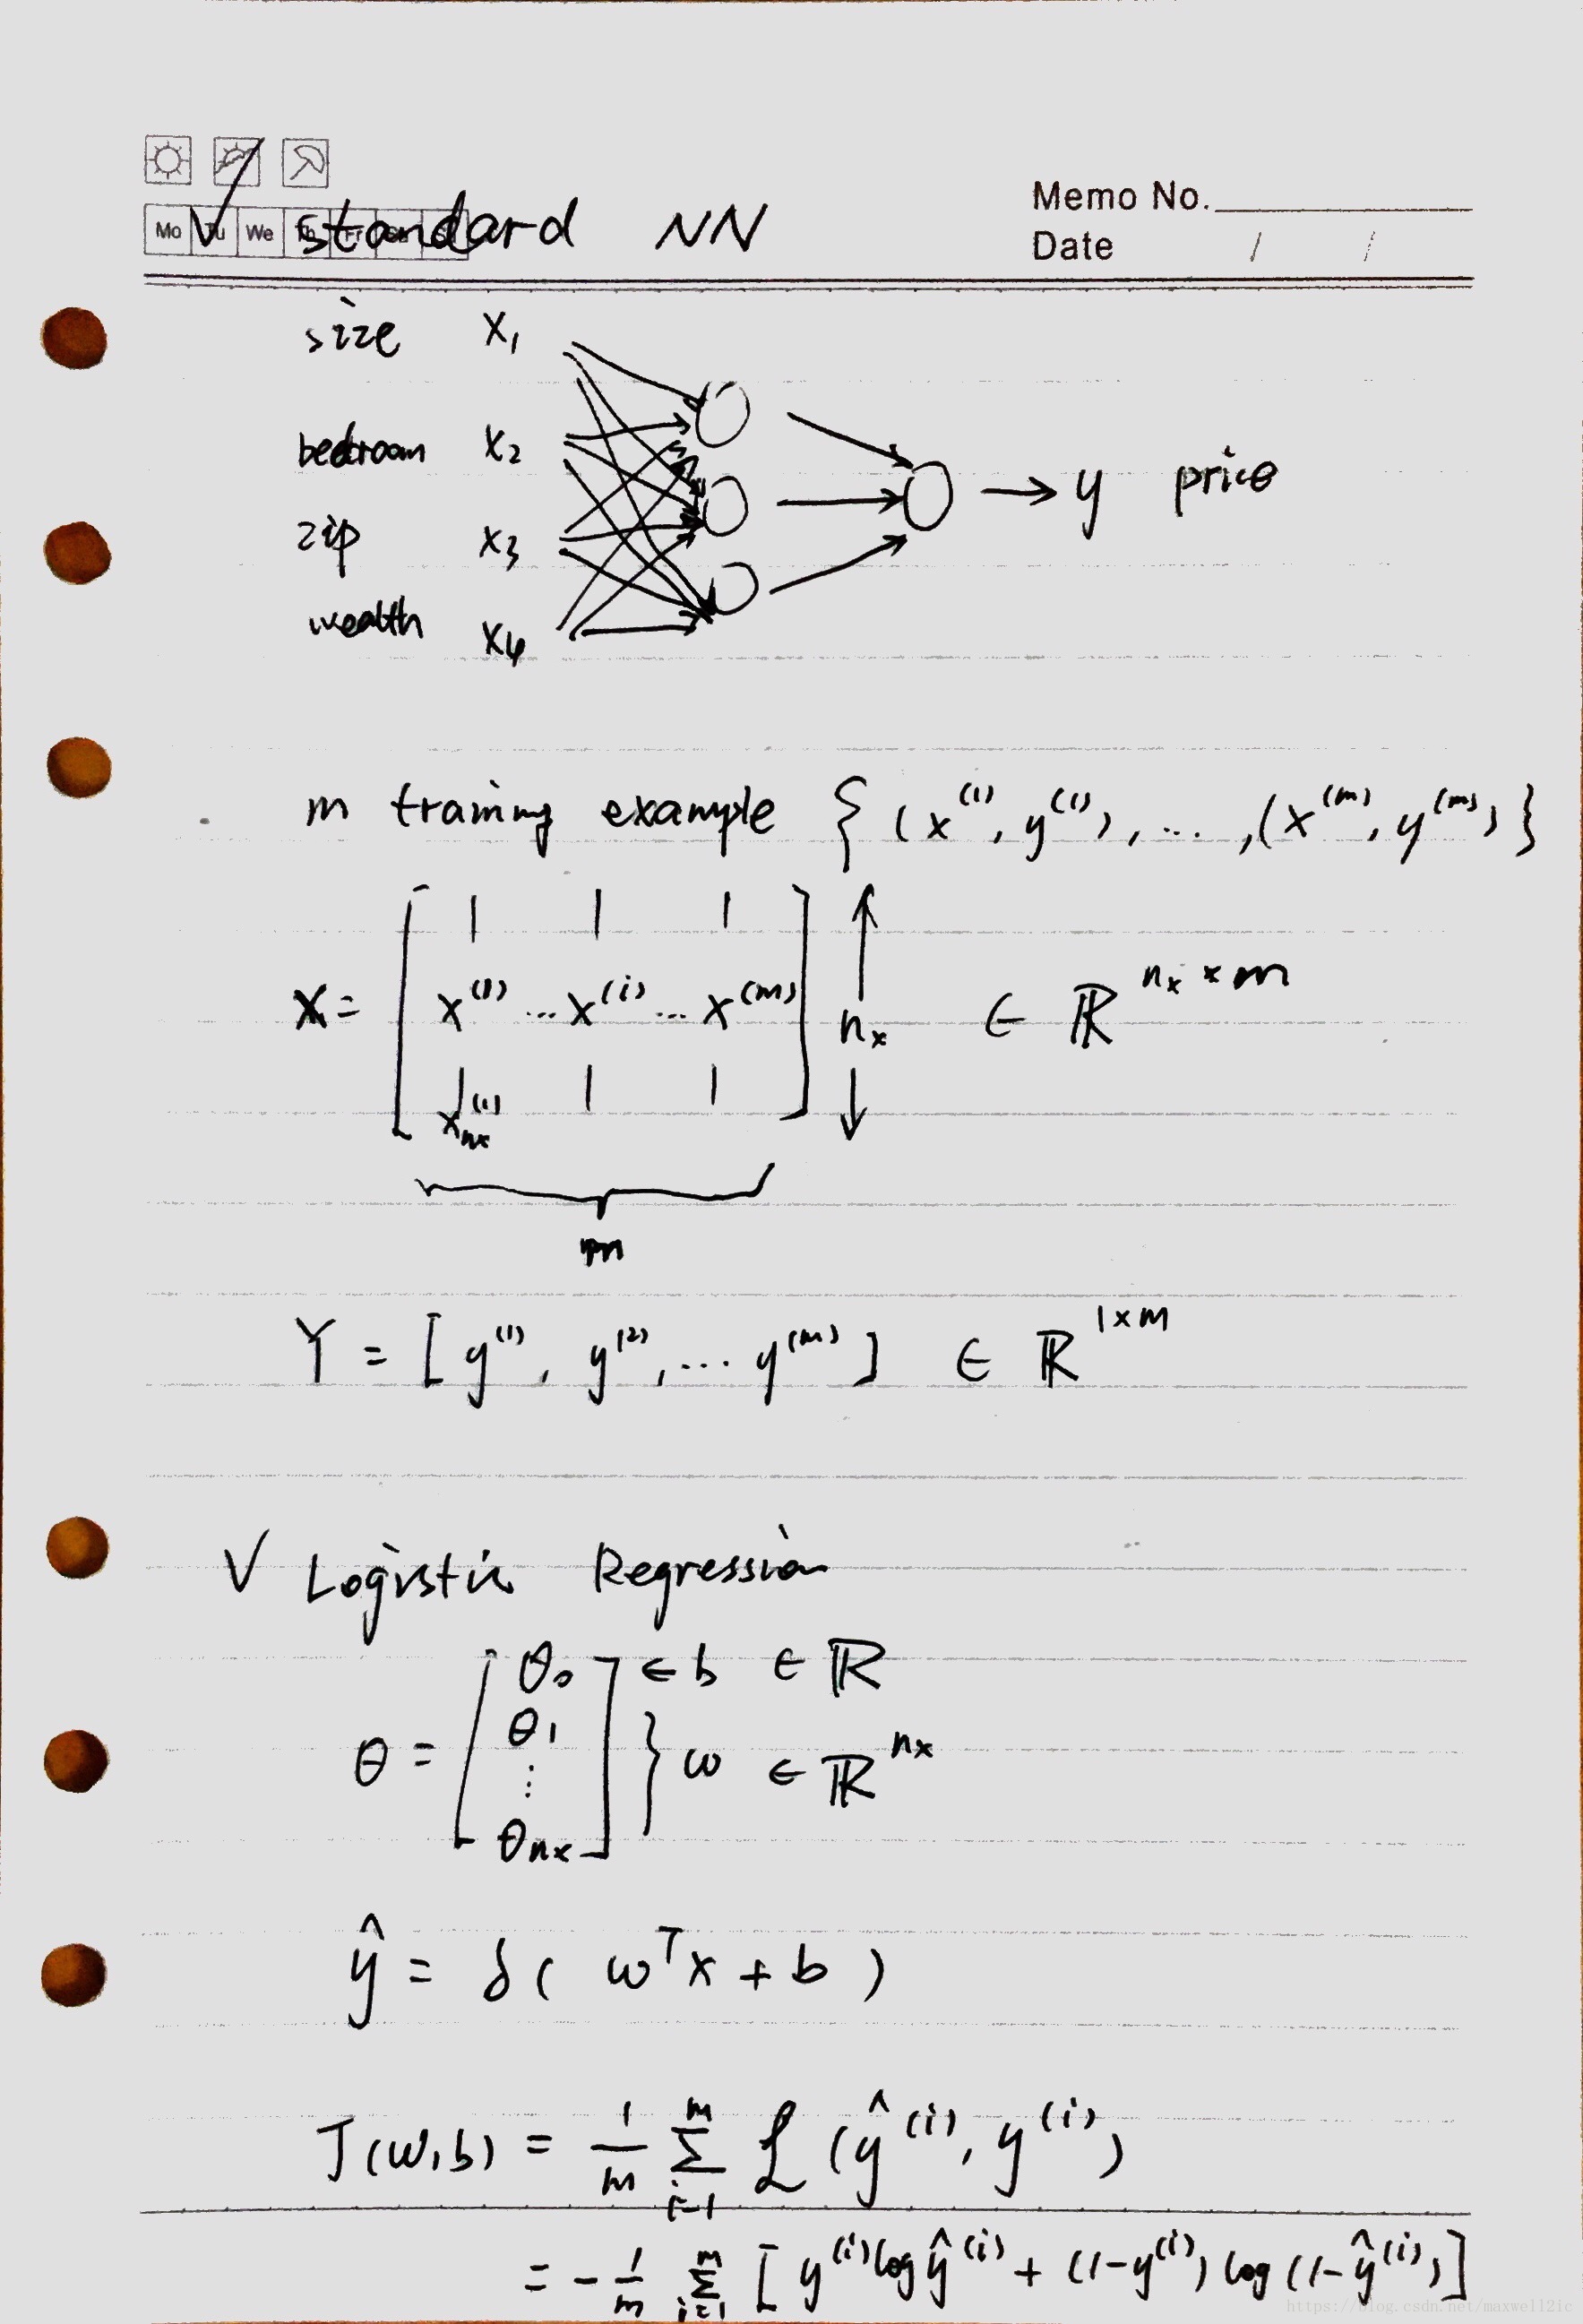 Memo No.
Mo Tu We Th Fr Sa
✓ standard NN
Date / /
size x₁
bedroom x₂
zip x₃
wealth x₄
→ y price
m training example { (x⁽¹⁾, y⁽¹⁾), ... ,(x⁽ᵐ⁾, y⁽ᵐ⁾) }
X = [ x⁽¹⁾ ... x⁽ⁱ⁾ ... x⁽ᵐ⁾ ] n_x ∈ ℝ^{n_x × m}
x_{n_x}⁽¹⁾
m
Y = [ y⁽¹⁾, y⁽²⁾, ... y⁽ᵐ⁾ ] ∈ ℝ^{1×m}
√ Logistic Regression
θ₀ ← b ∈ ℝ
θ₁
θ = ⋮ } ω ∈ ℝ^{n_x}
θ_{n_x}
ŷ = δ( ω^T x + b )
J(ω,b) = 1/m Σ_{i=1}^{m} ℒ (ŷ⁽ⁱ⁾, y⁽ⁱ⁾)
= - 1/m Σ_{i=1}^{m} [ y⁽ⁱ⁾ log ŷ⁽ⁱ⁾ + (1-y⁽ⁱ⁾) log (1-ŷ⁽ⁱ⁾) ]
https://blog.csdn.net/maxwell2ic